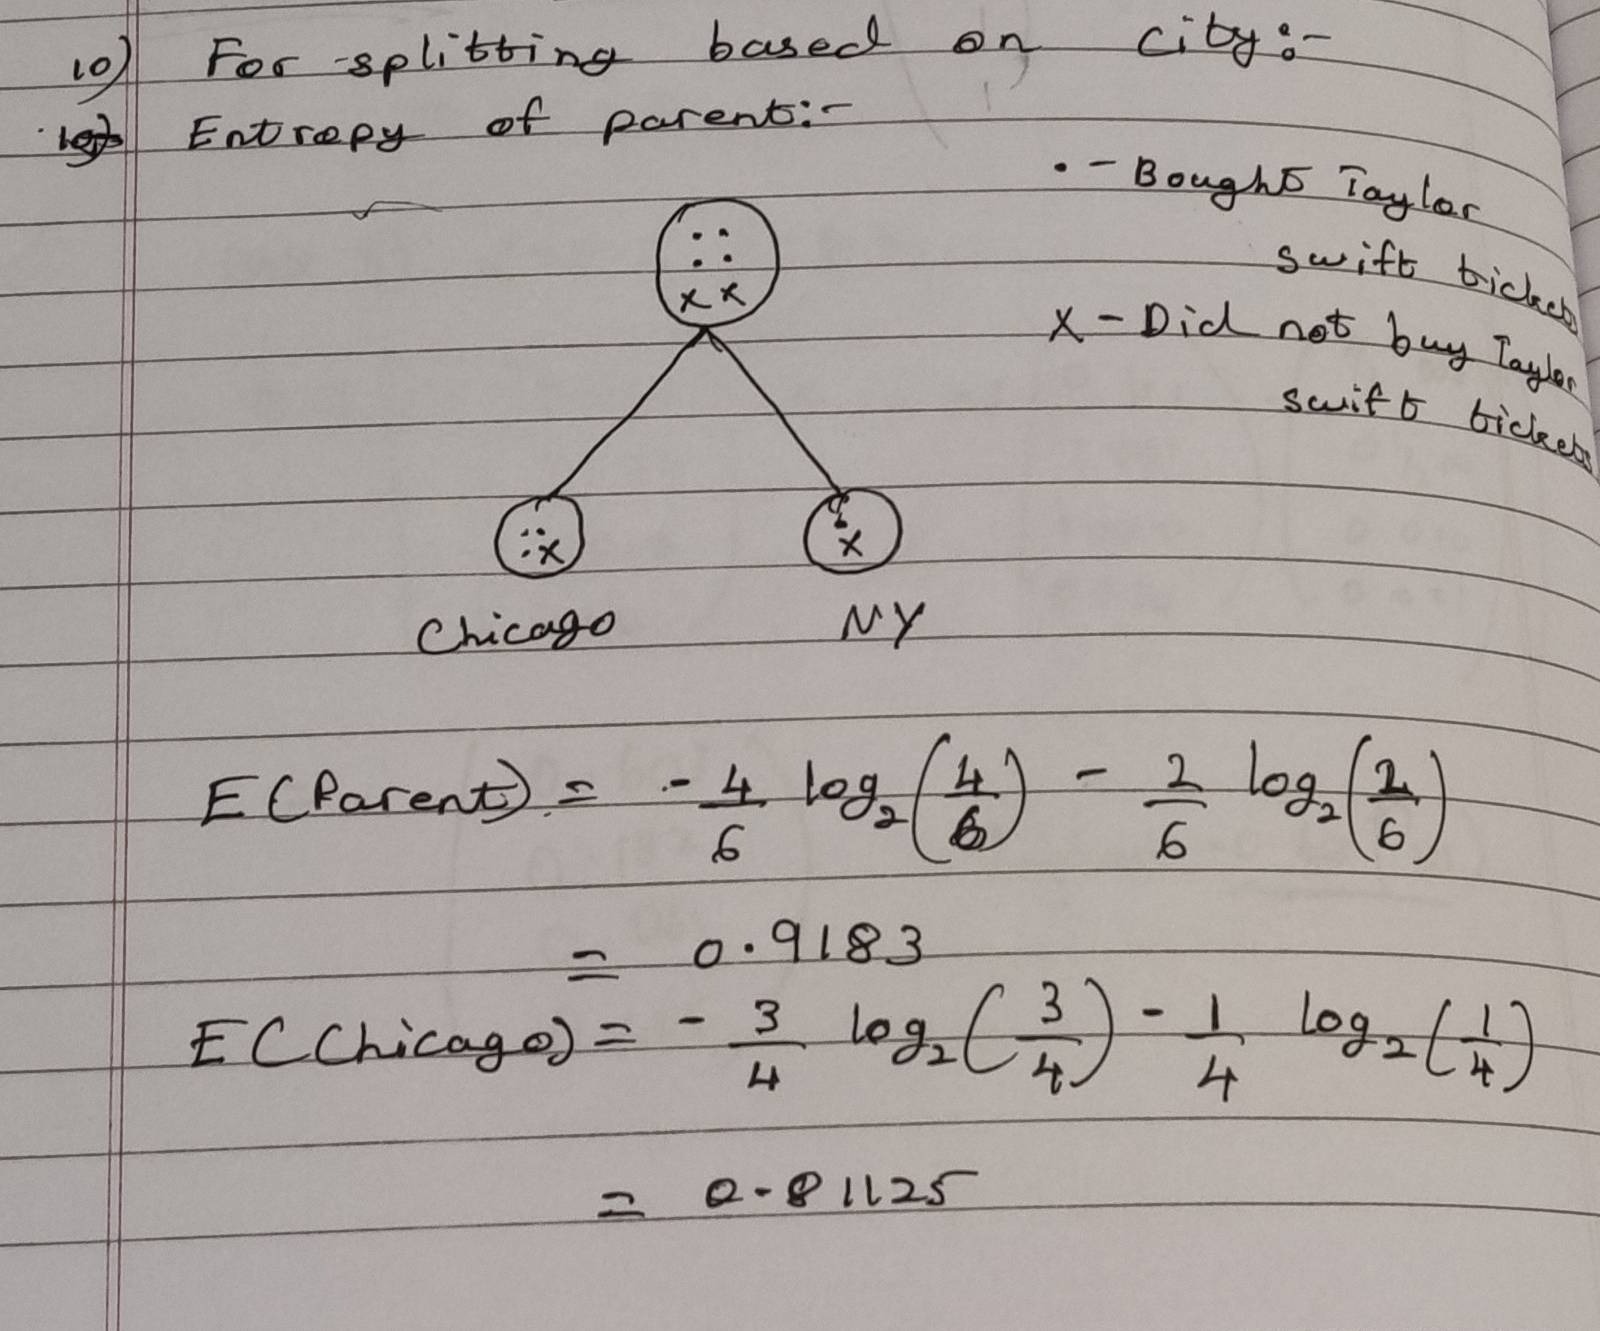 10) For splitting based on city:-
Entropy of parent:-
. - Bought Taylor
swift tickets
X - Did not buy Taylor
swift tickets
x x
x
x
Chicago NY
E(Parent) = - 4/6 log₂(4/6) - 2/6 log₂(2/6)
= 0.9183
E(Chicago) = - 3/4 log₂(3/4) - 1/4 log₂(1/4)
= 0.81125